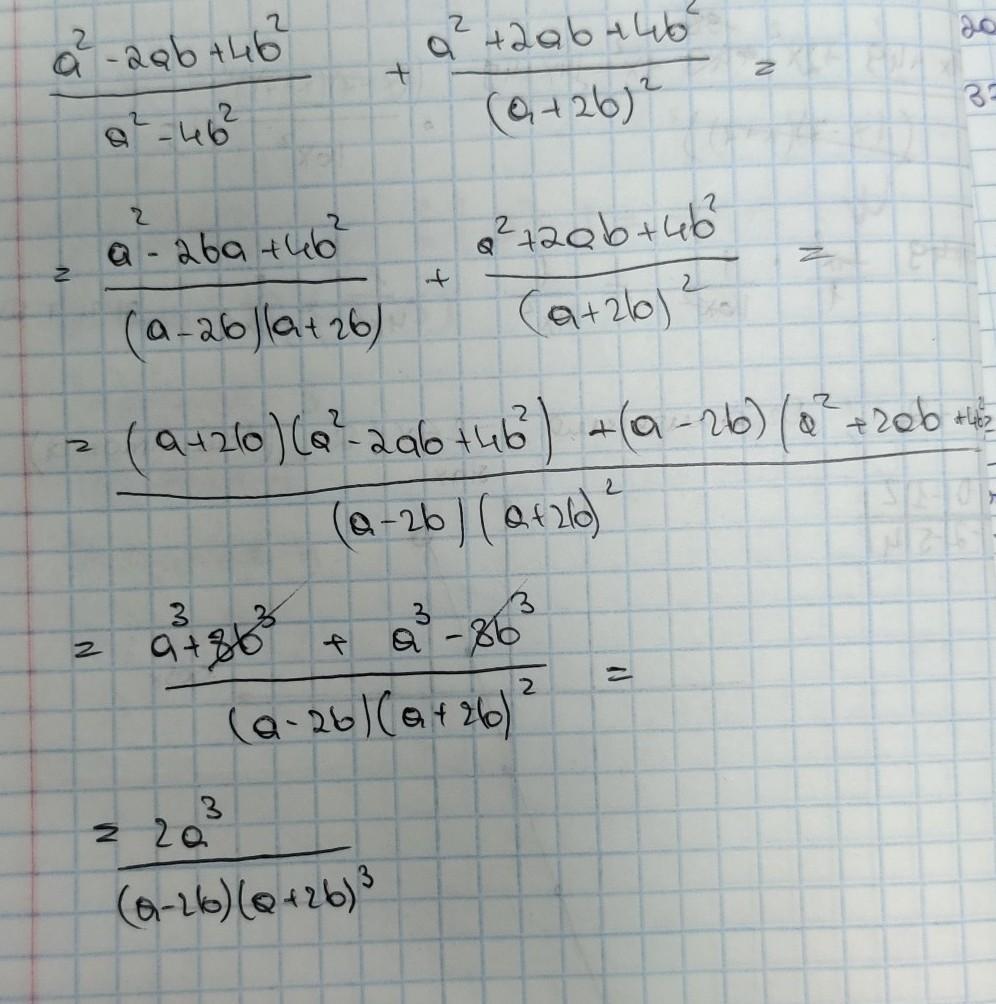 a² - 2ab + 4b² / a² - 4b² + a² + 2ab + 4b² / (a + 2b)² =
= a² - 2ba + 4b² / (a - 2b)(a + 2b) + a² + 2ab + 4b² / (a + 2b)² =
= (a + 2b)(a² - 2ab + 4b²) + (a - 2b)(a² + 2ab + 4b² / (a - 2b)(a + 2b)² =
= a³ + 8b³ + a³ - 8b³ / (a - 2b)(a + 2b)² =
= 2a³ / (a - 2b)(a + 2b)³